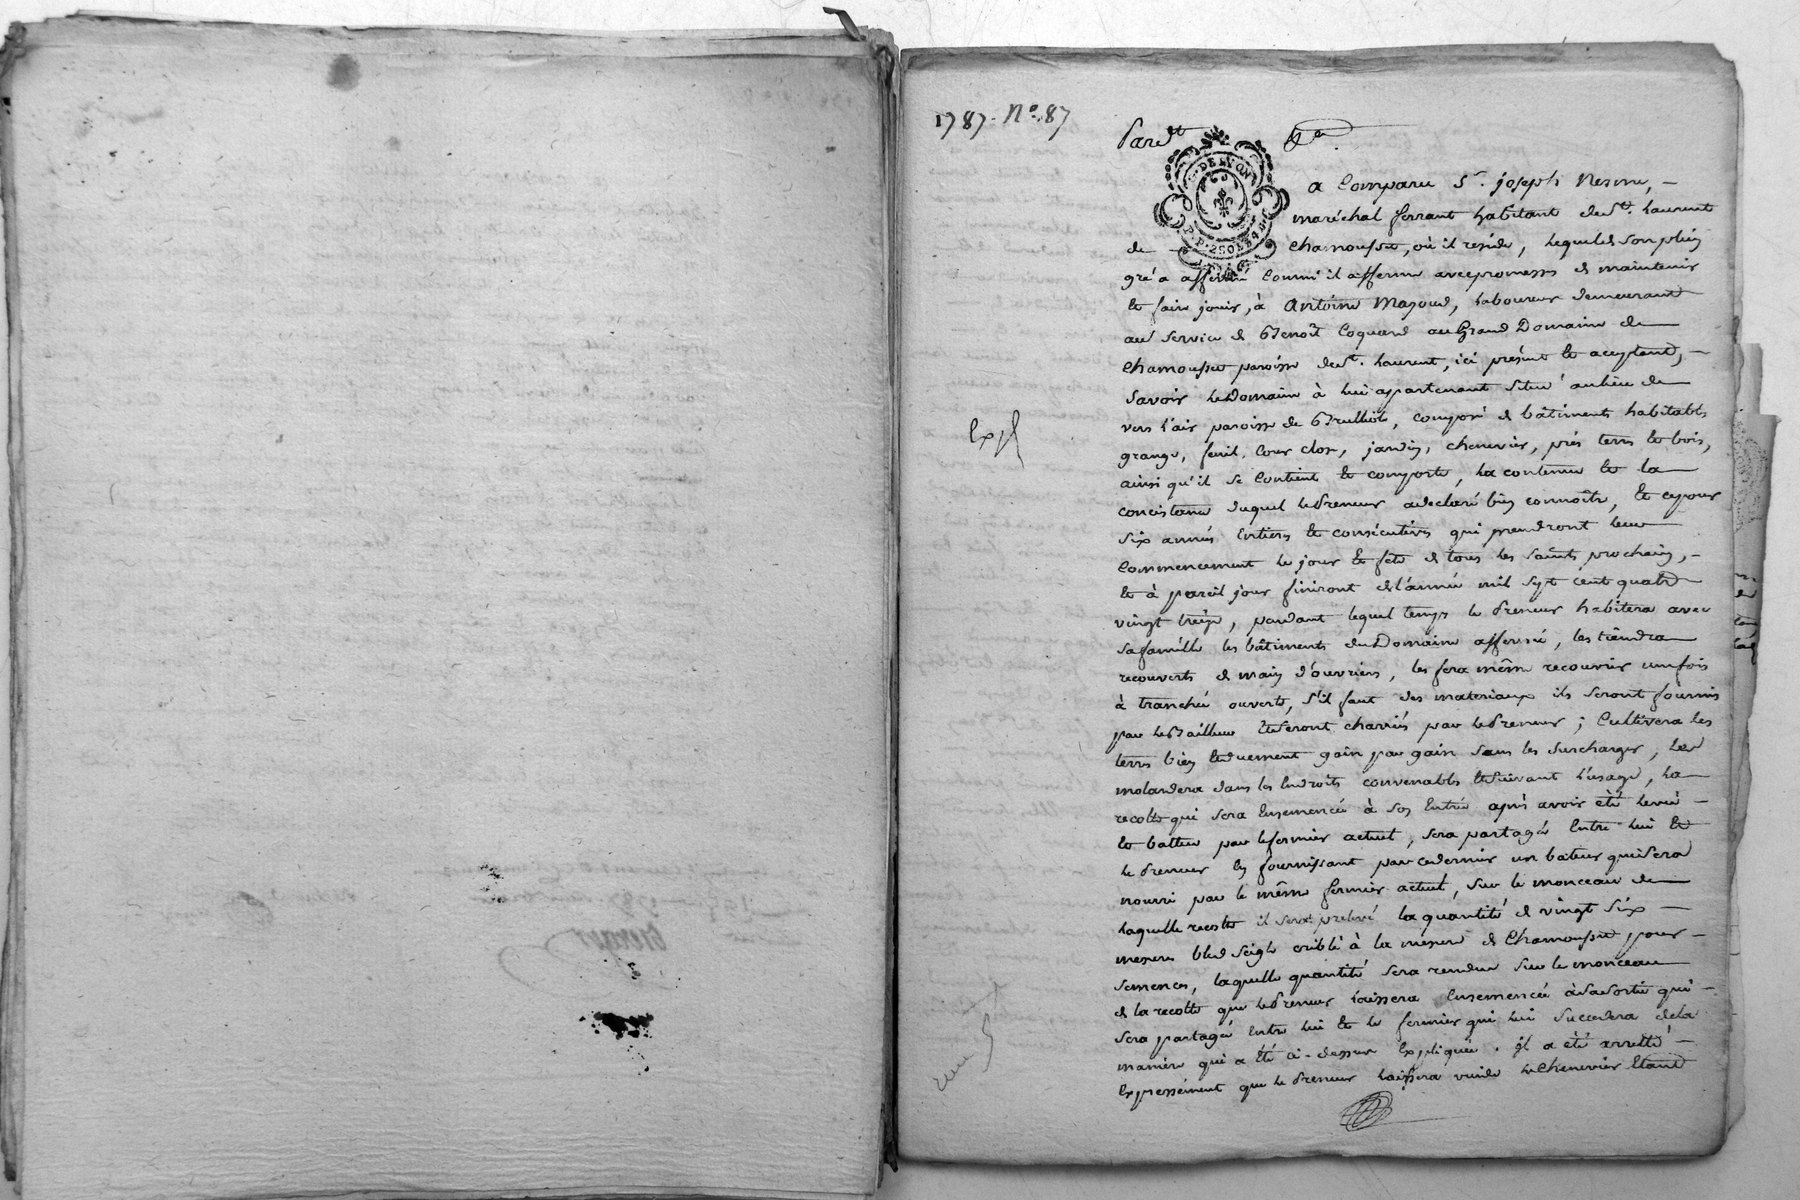 1787. No. 87
Pardt
G. DE LYON
a Comparu Sr. joseph Nesme, -
maréchal ferrant habitant de St. Laurent
de Chamousset, où il reside, lequel de son plein
gré a affermé comme il afferme avec promesses de maintenir
et faire jouir, à Antoine Mazoud, laboureur demeurant
au service de Benoît Coquard au Grand Domaine de
Chamousset paroisse de St. Laurent, ici présent et acceptant, -
Savoir le Domaine à lui appartenant situé au lieu de
vers l'air paroisse de Brullioles, composé de bâtiments habitables
grange, fenil, Cour clos, jardin, chenevier, prés terres et bois,
ainsi qu'il se contient et comporte, la contenue et la
concistance duquel le Preneur a declaré bien connoître, et ce pour
six années entieres et consécutives qui prendront leur
Commencement le jour et fête de tous les Saints prochain, -
et à pareil jour finiront de l'année mil sept cent quatre
vingt treize, pendant lequel temps le Preneur habitera avec
sa famille les bâtiments du Domaine affermé, les tiendra
recouverts de main d'ouvriers, les fera même recouvrir une fois
à tranché ouverte, s'il faut des materiaux ils seront fournis
par le Bailleur et seront charriés par le Preneur; Cultivera les
terres bien et duement gain par gain sans les surcharger, les
molandera dans les endroits convenables et suivant l'usage, la
recolte qui sera ensemencée à son entrée après avoir été levée -
et battue par le fermier actuel, sera partagée entre lui et
le Preneur en fournissant par ce dernier un bateur qui sera
nourri par le même fermier actuel, sur le monceau de
laquelle recolte il sera prelevé la quantité de vingt six -
mesures bled seigle criblé à la mesure de Chamousset pour -
semences, laquelle quantité sera rendue sur le monceau
de la recolte que le Preneur laissera ensemencée à sa sortie qui -
sera partagée entre lui et le fermier qui lui succedera de la
maniere qui a été ci-dessus expliquée. il a été arretté -
expressément que le Preneur laissera vuide le Chenevier étant